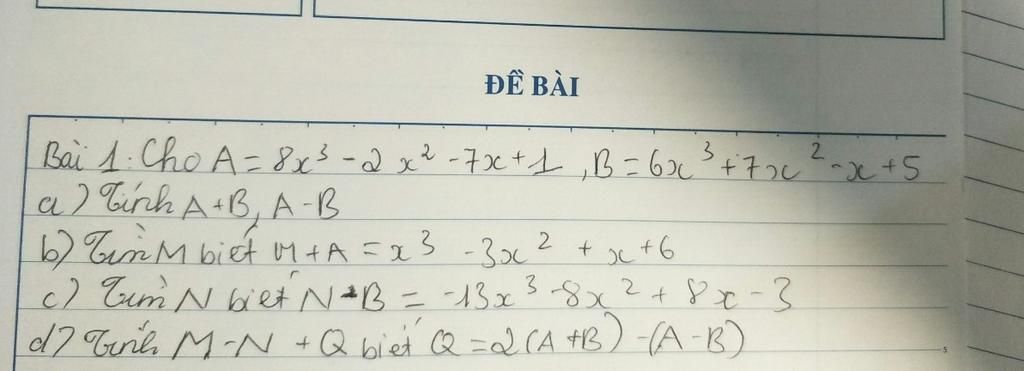 ĐỀ BÀI
Bài 1: Cho A = 8x³ - 2x² - 7x + 1, B = 6x³ + 7x² - x + 5
a) Tính A + B, A - B
b) Tìm M biết M + A = x³ - 3x² + x + 6
c) Tìm N biết N - B = -13x³ - 8x² + 8x - 3
d) Tính M - N + Q biết Q = 2(A + B) - (A - B)